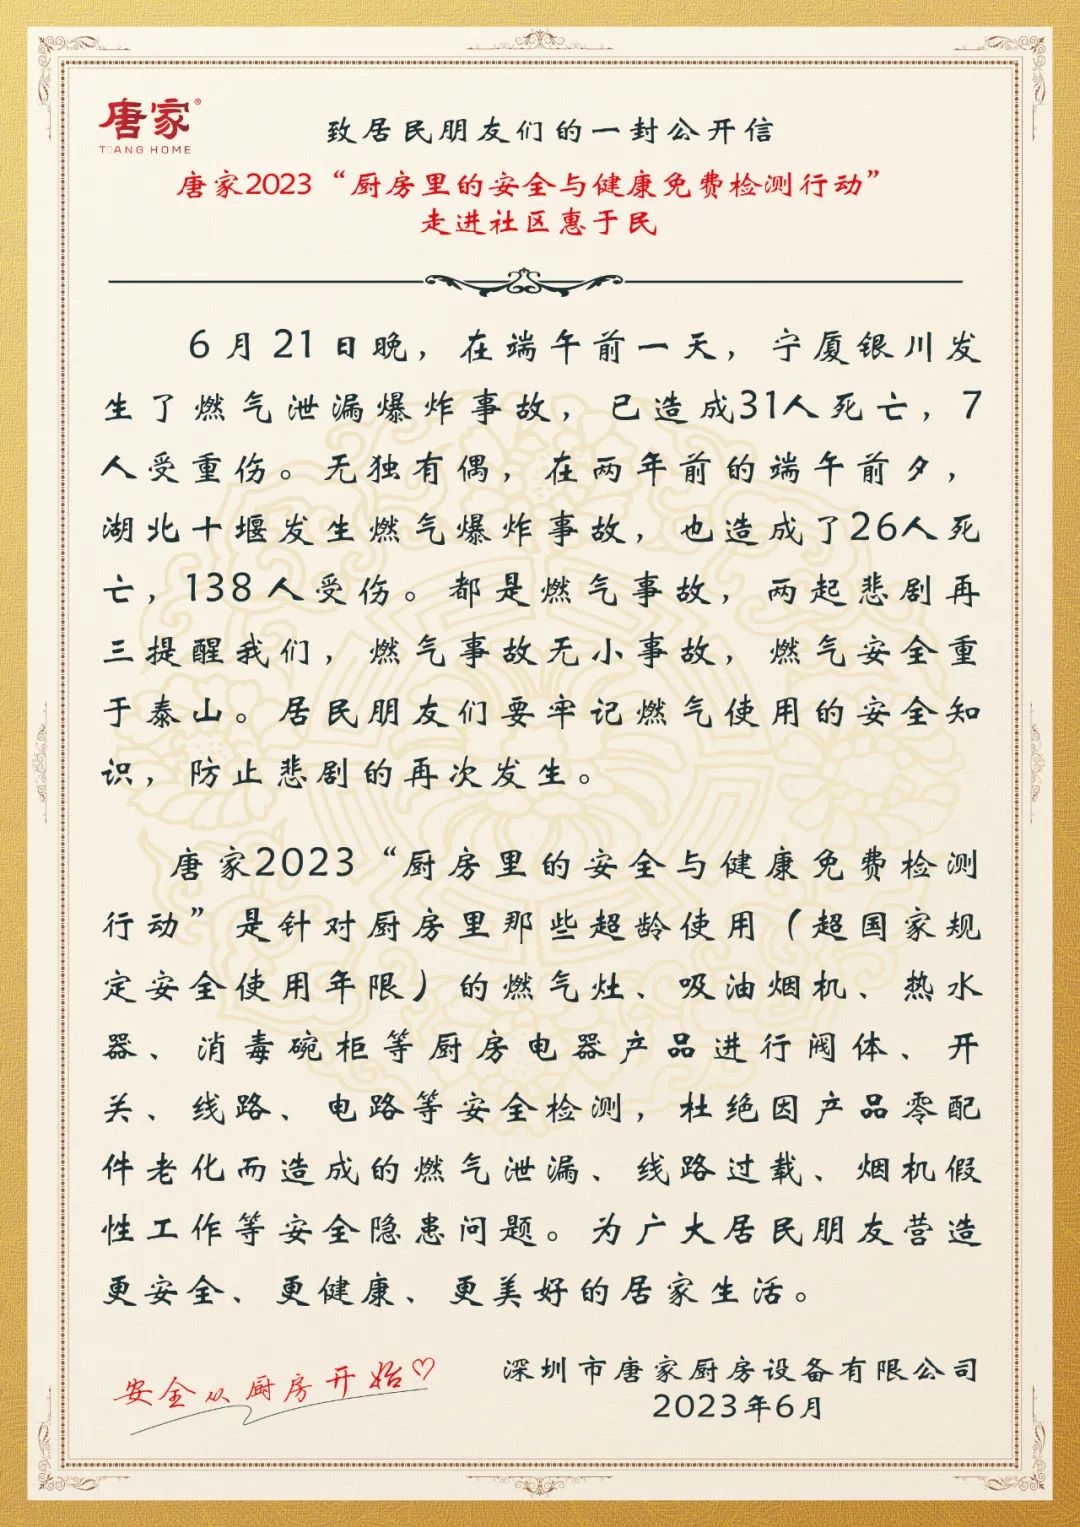 唐家®
TANG HOME
致居民朋友们的一封公开信
唐家2023“厨房里的安全与健康免费检测行动”
走进社区惠于民
6月21日晚，在端午前一天，宁厦银川发
生了燃气泄漏爆炸事故，已造成31人死亡，7
人受重伤。无独有偶，在两年前的端午前夕，
湖北十堰发生燃气爆炸事故，也造成了26人死
亡，138人受伤。都是燃气事故，两起悲剧再
三提醒我们，燃气事故无小事故，燃气安全重
于泰山。居民朋友们要牢记燃气使用的安全知
识，防止悲剧的再次发生。
唐家2023“厨房里的安全与健康免费检测
行动”是针对厨房里那些超龄使用（超国家规
定安全使用年限）的燃气灶、吸油烟机、热水
器、消毒碗柜等厨房电器产品进行阀体、开
关、线路、电路等安全检测，杜绝因产品零配
件老化而造成的燃气泄漏、线路过载、烟机假
性工作等安全隐患问题。为广大居民朋友营造
更安全、更健康、更美好的居家生活。
安全从厨房开始♡
深圳市唐家厨房设备有限公司
2023年6月